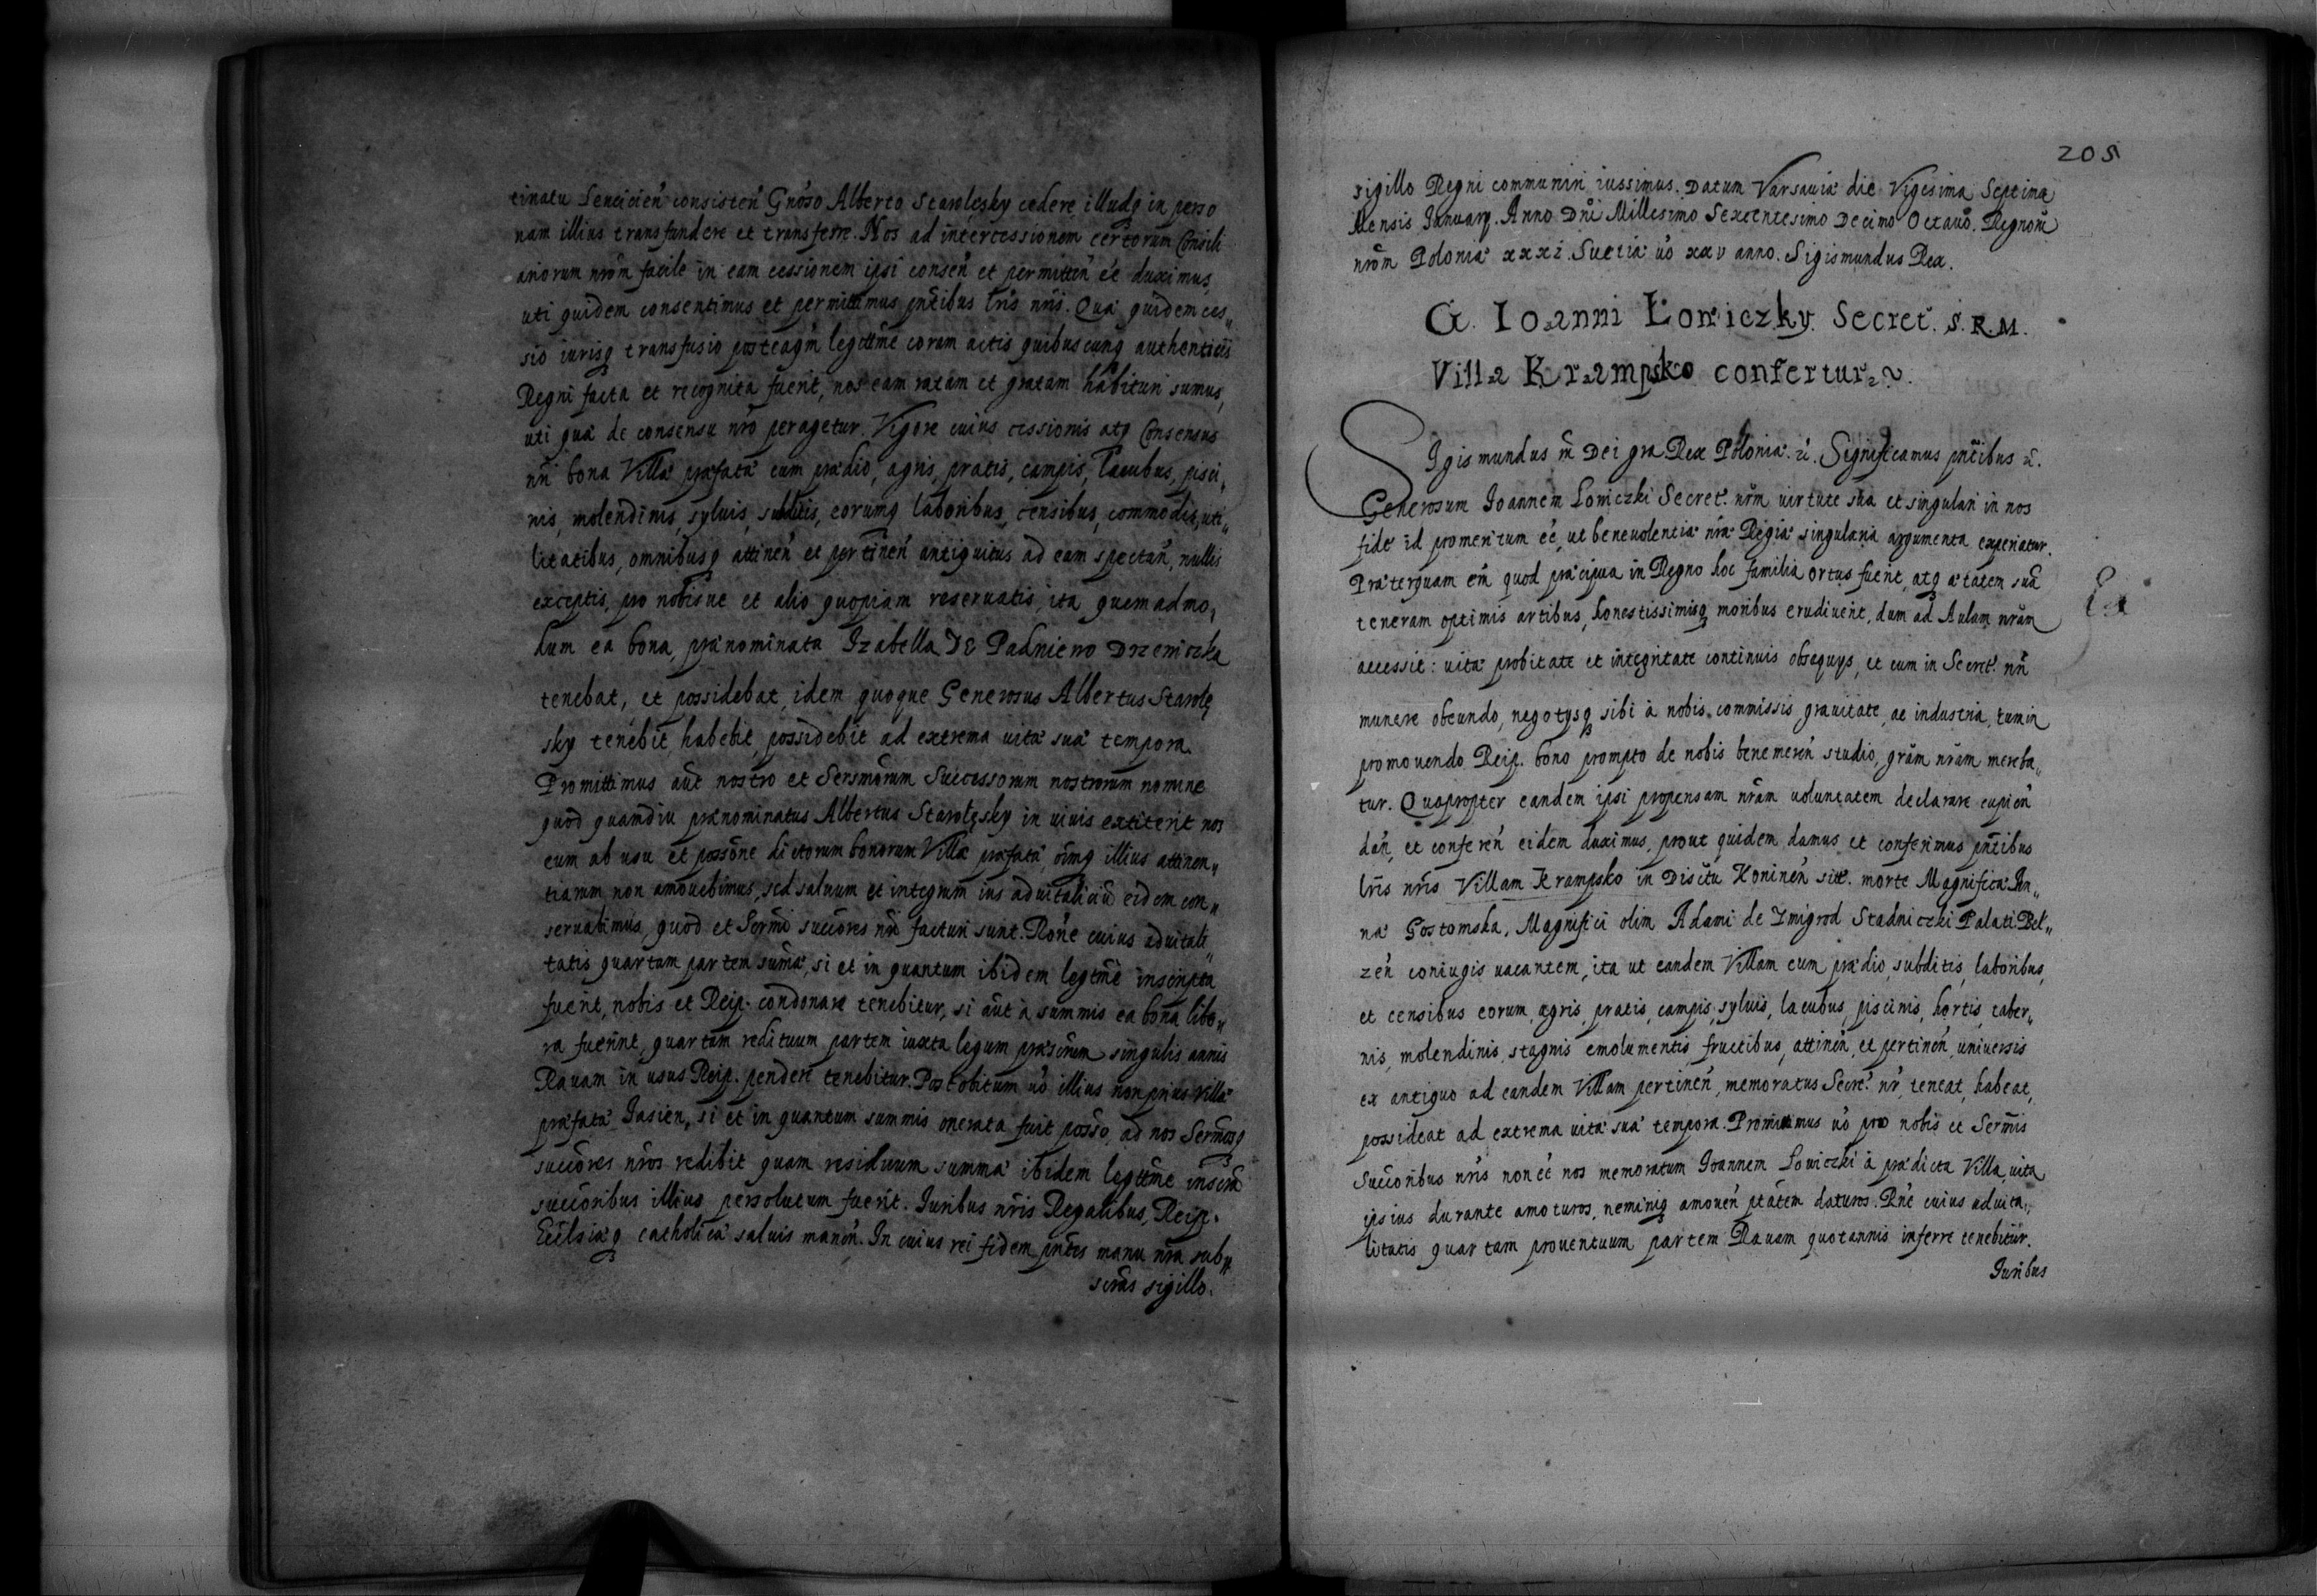 tinatu Lencicień consisteń Gnoso Alberto Starolęsky cedere illudq in perso
nam illius transfundere et transferre. Nos ad intercessionem certorum Consili
ariorum nrōm facile in eam cessionem ipsi conseń et permitteń ēe duximus,
uti quidem consentimus et permittimus pntibus lris nris. Quæ quidem ces„
sio iurisq transfusio posteaqm legitime coram actis quibuscunq authenticis
Regni facta et recognita fuerit, nos eam ratam et gratam habituri sumus,
uti quæ de consensu nro peragetur. Vigore cuius cessionis atq Consensus
nri bona Villæ præfatæ cum prædio, agris, pratis, campis, lacubus, pisci„
nis, molendinis, syluis, subditis, eorumq laboribus, censibus, commodis, uti„
litatibus, omnibusq attineń et pertineń antiquitus ad eam spectań, nullis
exceptis, pro nobisue et alio quopiam reseruatis, ita quemadmo„
dum ea bona, prænominata Izabella DE Padniewo Drzewiczka
tenebat, et possidebat, idem quoque Generosus Albertus Starolę
sky tenebit, habebit, possidebit ad extrema uitæ suæ tempora.
Promittimus aūt nostro et Sersmōrum Successorum nostrorum nomine
quōd quamdiu prænominatus Albertus Starolęsky in uiuis extiterit nos
eum ab usu et possōne dictorum bonorum Villæ præfatæ, oīmq illius attinen„
tiarum non amouebimus, sed saluum et integrum ius aduitalitiū eidem con„
seruabimus, quōd et Sermī succōres nri facturi sunt. Rōne cuius aduitali„
tatis quartam partem sumæ, si et in quantum ibidem legtme inscripta
fuerit, nobis et Reip. condonare tenebitur, si aūt à summis ea bona libe„
ra fuerint, quartam redituum partem iuxta legum præscrīum singulis annis
Rauam in usus Reip. pendere tenebitur. Post obitum uō illius non prius Villæ
præfatæ Jasień, si et in quantum summis onerata fuit posso, ad nos Sermōsq
succōres nrōs redibit quam residuum summæ ibidem legttme inscrae
succōribus illius persolutum fuerit. Iuribus nris Regalibus, Reip.
Ecclsiæq catholicæ saluis maneń. In cuius rei fidem pntes manu nra sub„
scras sigillo.
205
sigillo Regni communiri iussimus. Datum Varsauiæ die Vigesima Septima
Mensis Ianuarij. Anno Dni Millesimo Sexcentesimo Decimo Octauo. Regnorū
nrōm Poloniæ xxxi. Sueciæ uō xxv anno. Sigismundus Rex.
G. Ioanni Łowiczky Secret. S.R.M.
Villa Krampsko confertur.
Sigismundus III Dei gra Rex Poloniæ. Significamus pntibus
Generosum Ioannem Lowiczki Secret. nrm uirtute sua et singulari in nos
fide id promeritum ēe, ut beneuolentiæ nræ Regiæ singularia argumenta experiatur.
Præterquam em quod præcipua in Regno hoc familia ortus fuerit, atq ætatem suā
teneram optimis artibus, honestissimisq moribus erudiuerit, dum ad Aulam nrām
accessit: uitæ probitate et integritate continuis obsequys, et cum in Secret. nri
munere obeundo, negotysq sibi à nobis commissis grauitate, ac industria, tum in
promouendo Reip. bono prompto de nobis benemereń studio, grām nrām mereba„
tur. Quapropter eandem ipsi propensam nrām uoluntatem declarare cupień
dań, et conferеń eidem duximus, prout quidem damus et conferimus pntibus
lris nris Villam Krampsko in Disctu Koninеń sitt. morte Magnificæ An„
næ Gostomska, Magnifici olim Adami de Zmigrod Stadniczki Palati Bel„
zeń coniugis uacantem, ita ut eandem Villam cum prædio, subditis, laboribus,
et censibus eorum, agris, pratis, campis, syluis, lacubus, piscinis, hortis, taber„
nis, molendinis, stagnis emolumentis, fructibus, attineń, et pertineń, uniuersis
ex antiquo ad eandem Villam pertineń, memoratus Secret. nr, teneat, habeat,
possideat ad extrema uitæ suæ tempora. Promittimus uō pro nobis et Sermis
Succōribus nris non ēe nos memoratum Ioannem Lowiczki à prædicta Villa, uita
ipsius durante amoturos, neminiq amoueń ptātem daturos. Rne cuius aduita„
litatis quartam prouentuum partem Rauam quotannis inferre tenebitur.
Iuribus